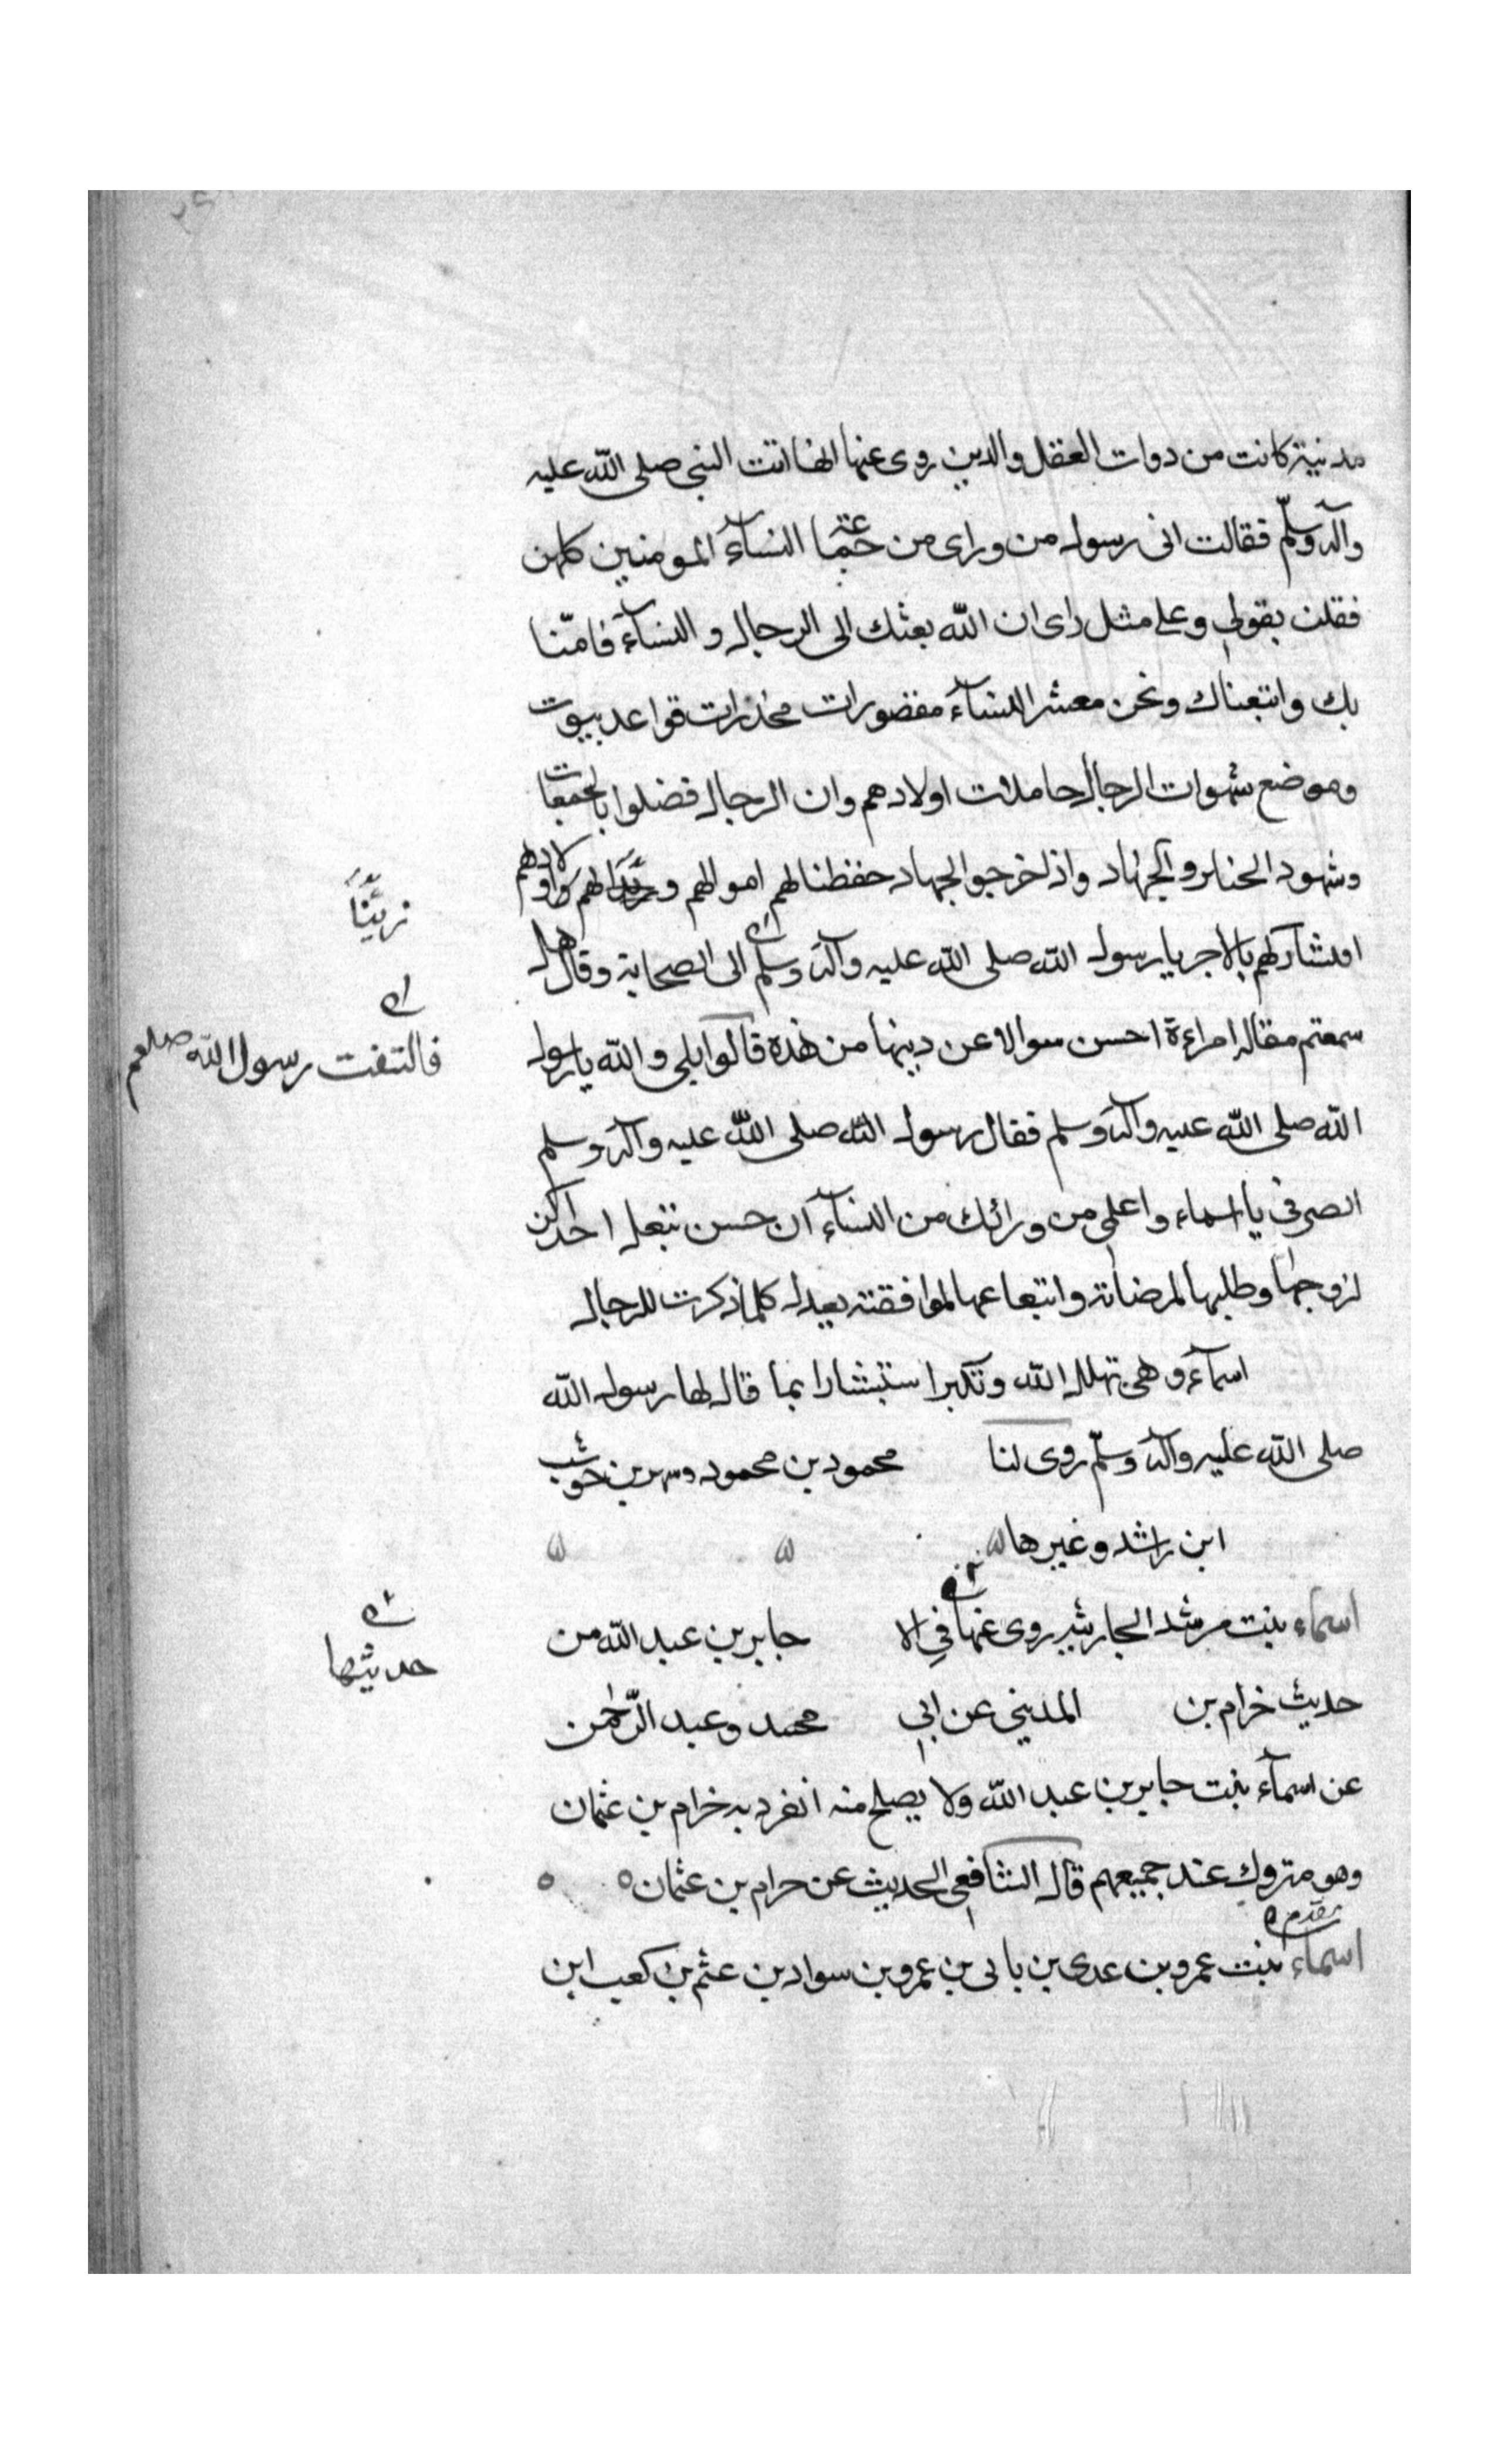 مدنية كانت من دوات العقل والدين روى عنها انها اتت النبي صلى الله عليه
وآله وسلّم فقالت انى رسول من وراى من النسآء المومنين كلهن
فقلن بقولي وعلى مثل راى ان الله بعثك الى الرجال و النسآء فامنّا
بك واتبعناك ونحن معشر النسآء مقصورات مخدرات قواعد بيوت
وموضع شهوات الرجال حاملات اولادهم وان الرجال فضلوا بالجمعات
وشهود الجنايز والجهاد واذا خرجوا لجهاد حفظنا لهم اموالهم و اولادهم
افنشاركهم بالاجر يا رسول الله صلى الله عليه وآله وسلم الى الصحابة وقال هل
سمعتم مقال امراءة احسن سوالا عن دينها من هذه قالوا بلى والله يا رسول
الله صلى الله عليه وآله وسلم فقال رسول الله صلى الله عليه وآله وسلم
انصرفى يا اسماء واعلمي من ورائك من النسآء ان حسن تبعل احداكن
لزوجها وطلبها لمرضاته واتباعها لموافقته يعدل كلما ذكرت للرجال
اسمآء وهى تهلل الله وتكبر استبشارا بما قال لها رسول الله
صلى الله عليه وآله وسلّم روى لنا محمود بن محمود بن حوشب
ابن راشد وغيرها
اسماء بنت مرشد الحارثية روى عنها في الا جابر بن عبد الله من
حديث خرام بن المديني عن ابي محمد وعبد الرّحمن
عن اسمآء بنت جابر بن عبد الله ولا يصلح منه انفرد به خرام بن عثمان
وهو متروك عند جميعهم قال الشافعي الحديث عن حرام بن عثمان
تقدم
اسماء بنت عمرو بن عدى بن بابى بن عمرو بن سواد بن غثم بن كعب ابن
زيّنا
فالتفت رسول الله صلعم
حديثها